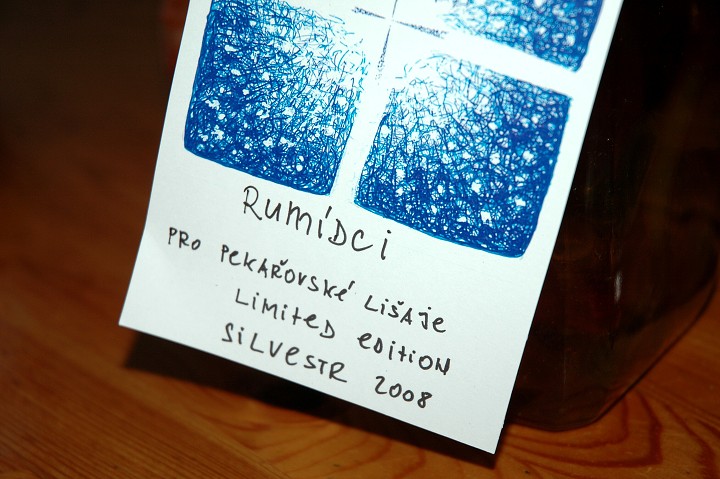 RUMÍDCI
PRO PEKAŘOVSKÉ LIŠAJE
LIMITED EDITION
SILVESTR 2008